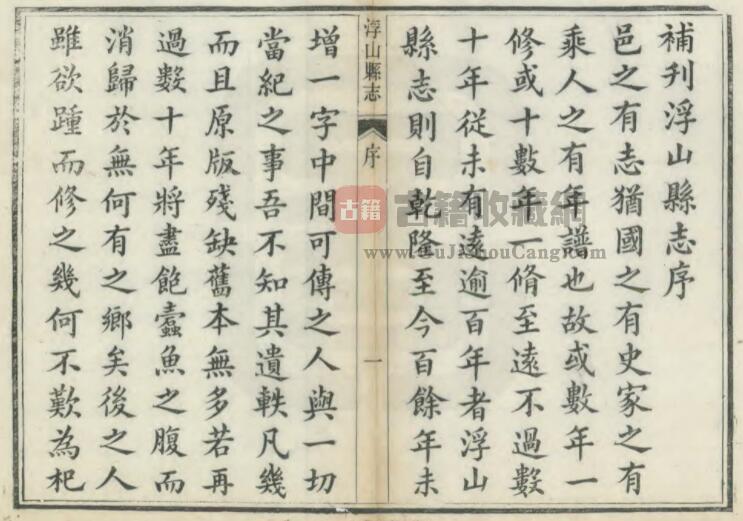 補刊浮山縣志序
邑之有志猶國之有史家之有
乘人之有年譜也故或數年一
修或十數年一脩至遠不過數
十年從未有遠逾百年者浮山
縣志則自乾隆至今百餘年未
浮山縣志
序
一
增一字中間可傳之人與一切
當紀之事吾不知其遺軼凡幾
而且原版殘缺舊本無多若再
過數十年將盡飽蠹魚之腹而
消歸於無何有之鄉矣後之人
雖欲踵而修之幾何不歎為杞
古籍
古籍收藏網
www.GuJiShouCang.com